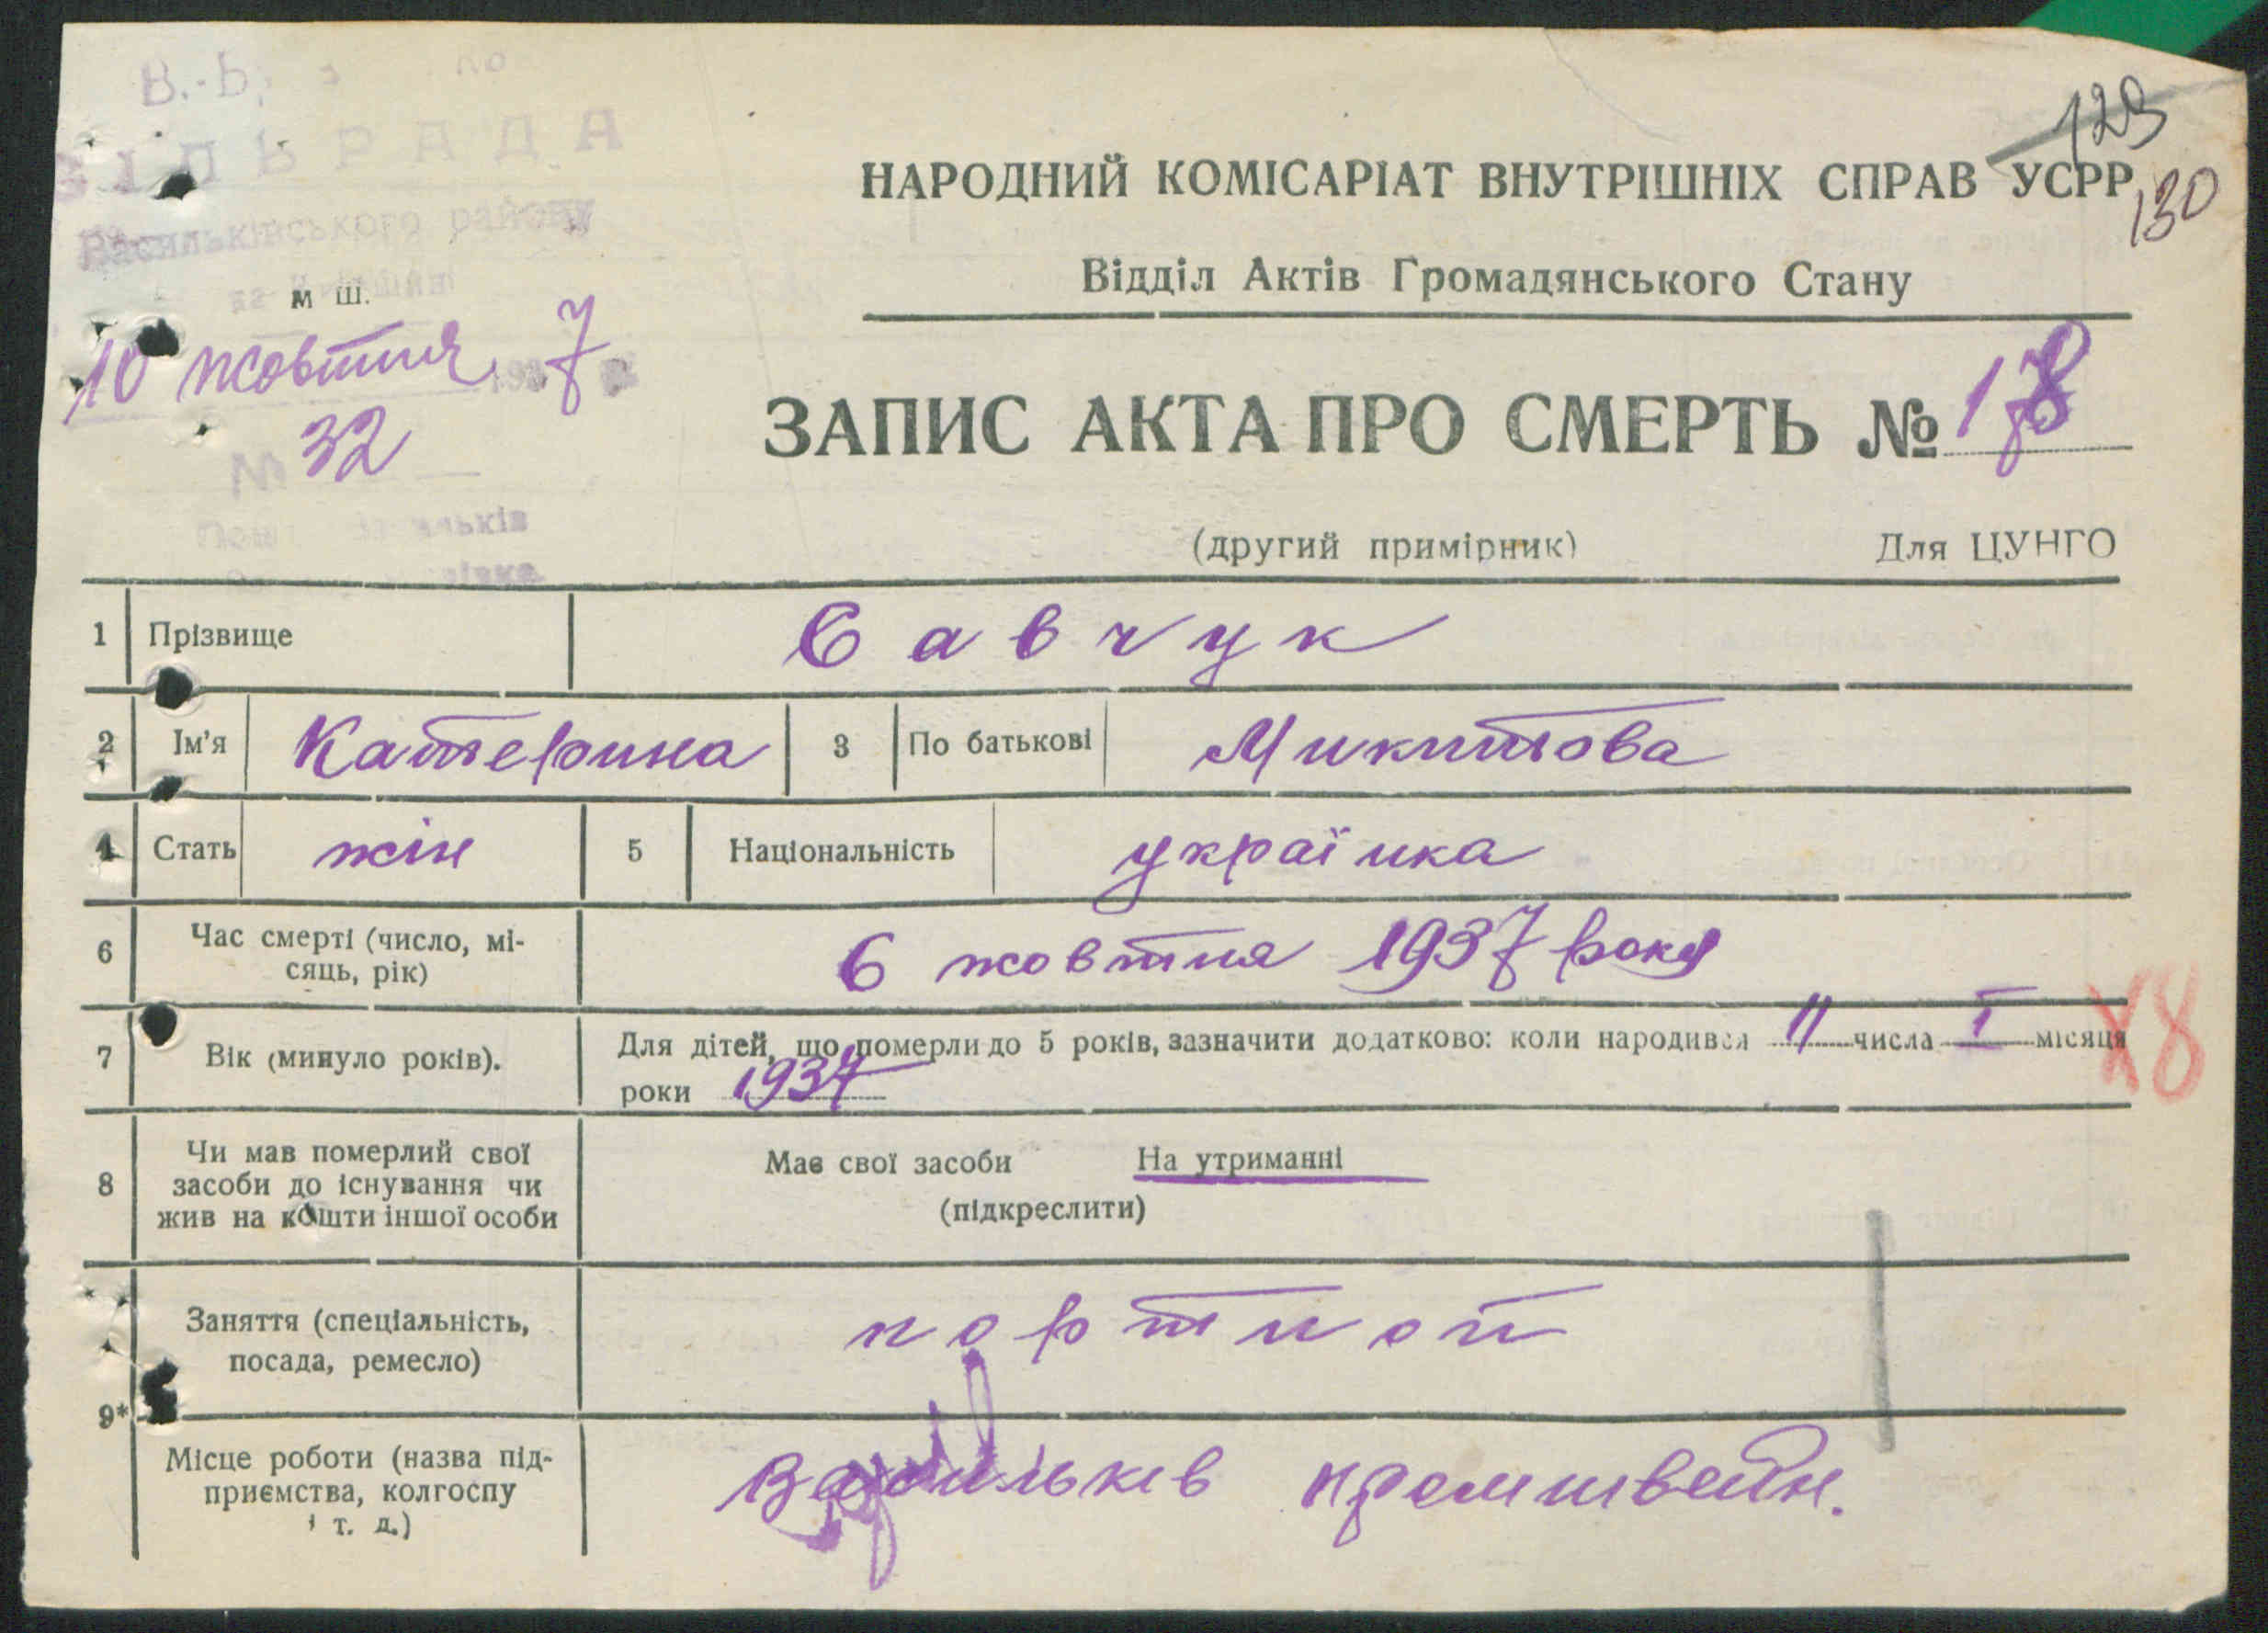 СІЛЬРАДА
Васильківського району
на Київщині
м ш.
10 жовтня 1937 р
№ 32
123
130
НАРОДНИЙ КОМІСАРІАТ ВНУТРІШНІХ СПРАВ УСРР
Відділ Актів Громадянського Стану
ЗАПИС АКТА ПРО СМЕРТЬ № 178
(другий примірник) Для ЦУНГО
1 Прізвище Савчук
2 Ім'я Катерина 3 По батькові Микитова
4 Стать жін 5 Національність українка
6 Час смерті (число, мі-
сяць, рік) 6 жовтня 1937 року
7 Вік (минуло років). Для дітей, що померли до 5 років, зазначити додатково: коли народився 11 числа I місяця
роки 1937
8 Чи мав померлий свої
засоби до існування чи
жив на кошти іншої особи
Має свої засоби На утриманні
(підкреслити)
Заняття (спеціальність,
посада, ремесло) портной
9*
Місце роботи (назва під-
приємства, колгоспу
і т. д.) Васильків промшвейн.